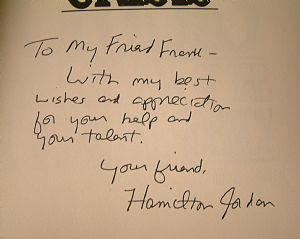 CRISIS
To My Friend Frank -
With my best
wishes and appreciation
for your help and
your talent.
Your friend,
Hamilton Jordan